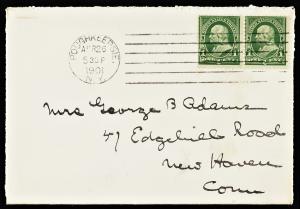 POUGHKEEPSIE
APR 26
5 30 P
1901
N.Y.
Mrs George B Adams
47 Edgehill Road
New Haven
Conn